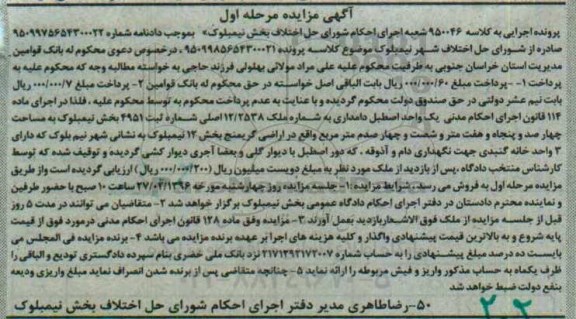 آگهی مزایده مرحله اول
پرونده اجرایی به کلاسه ۹۵۰۰۴۶ شعبه اجرای احکام شورای حل اختلاف بخش نیمبلوک» بموجب دادنامه شماره ۹۵۰۹۹۷۵۶۵۴۳۰۰۰۲۲
صادره از شورای حل اختلاف شهر نیمبلوک موضوع کلاسه پرونده ۹۵۰۹۹۸۵۶۵۴۳۰۰۰۲۱ ، درخصوص دعوی محکوم له بانک قوامین
مدیریت استان خراسان جنوبی به طرفیت محکوم علیه علی مراد مولائی بهلولی فرزند حاجی به خواسته مطالبه وجه که محکوم علیه به
پرداخت ۱- -پرداخت مبلغ ۰۰۰/۰۰۰/۶۰ ریال بابت الباقی اصل خواسته در حق محکوم له بانک قوامین ۲- پرداخت مبلغ ۰۰۰/۰۰۰/۷ ریال
بابت نیم عشر دولتی در حق صندوق دولت محکوم گردیده و با عنایت به عدم پرداخت محکوم به توسط محکوم علیه ، فلذا در اجرای ماده
۱۱۴ قانون اجرای احکام مدنی یک واحد اصطبل دامداری به شماره ملک ۱۲/۲۵۳۸ اصلی شماره ثبت ۴۹۵۱ بخش نیمبلوک به مساحت
چهار صد و پنجاه و هفت متر و شصت و چهار صدم متر مربع واقع در اراضی کریمنج بخش ۱۲ نیمبلوک به نشانی شهر نیم بلوک که دارای
۲ واحد خانه گنبدی جهت نگهداری دام و آذوقه ، که دور اصطبل با دیوار گلی وبعضا آجری دیوار کشی گردیده و توقیف شده که توسط
کارشناس منتخب دادگاه ،پس از بازدید از ملک مورد نظر به مبلغ دویست میلیون ریال (۰۰۰/۰۰۰/۲۰۰) ارزیابی گردیده است واز طریق
مزایده مرحله اول به فروش می رسد. شرایط مزایده: ۱- جلسه مزایده روز چهارشنبه مورخه ۲۷/۰۲/۱۳۹۶ ساعت ۱۰ صبح با حضور طرفین
و نماینده محترم دادستان در دفتر اجرای احکام دادگاه عمومی بخش نیمبلوک برگزار خواهد شد ۲- متقاضیان می توانند در مدت ۵ روز
قبل از جلسه مزایده از ملک فوق الاشاره بازدید بعمل آورند ۳- مزایده وفق ماده ۱۲۸ قانون اجرای احکام مدنی درمورد فوق از قیمت
پایه شروع و به بالاترین قیمت پیشنهادی واگذار و کلیه هزینه های اجرا بر عهده برنده مزایده می باشد ۴- برنده مزایده فی المجلس می
بایست ده درصد مبلغ پیشنهادی را به حساب شماره ۲۱۷۱۲۹۲۱۷۳۰۰۷ نزد بانک ملی خضری بنام سپرده دادگستری تودیع و الباقی را
ظرف یکماه به حساب مذکور واریز و فیش مربوطه را ارائه نماید ۵- چنانچه متقاضی پس از برنده شدن انصراف نماید مبلغ واریزی ودیعه
بنفع دولت ضبط خواهد شد
۵۰-رضاطاهری مدیر دفتر اجرای احکام شورای حل اختلاف بخش نیمبلوک
۲۰۲